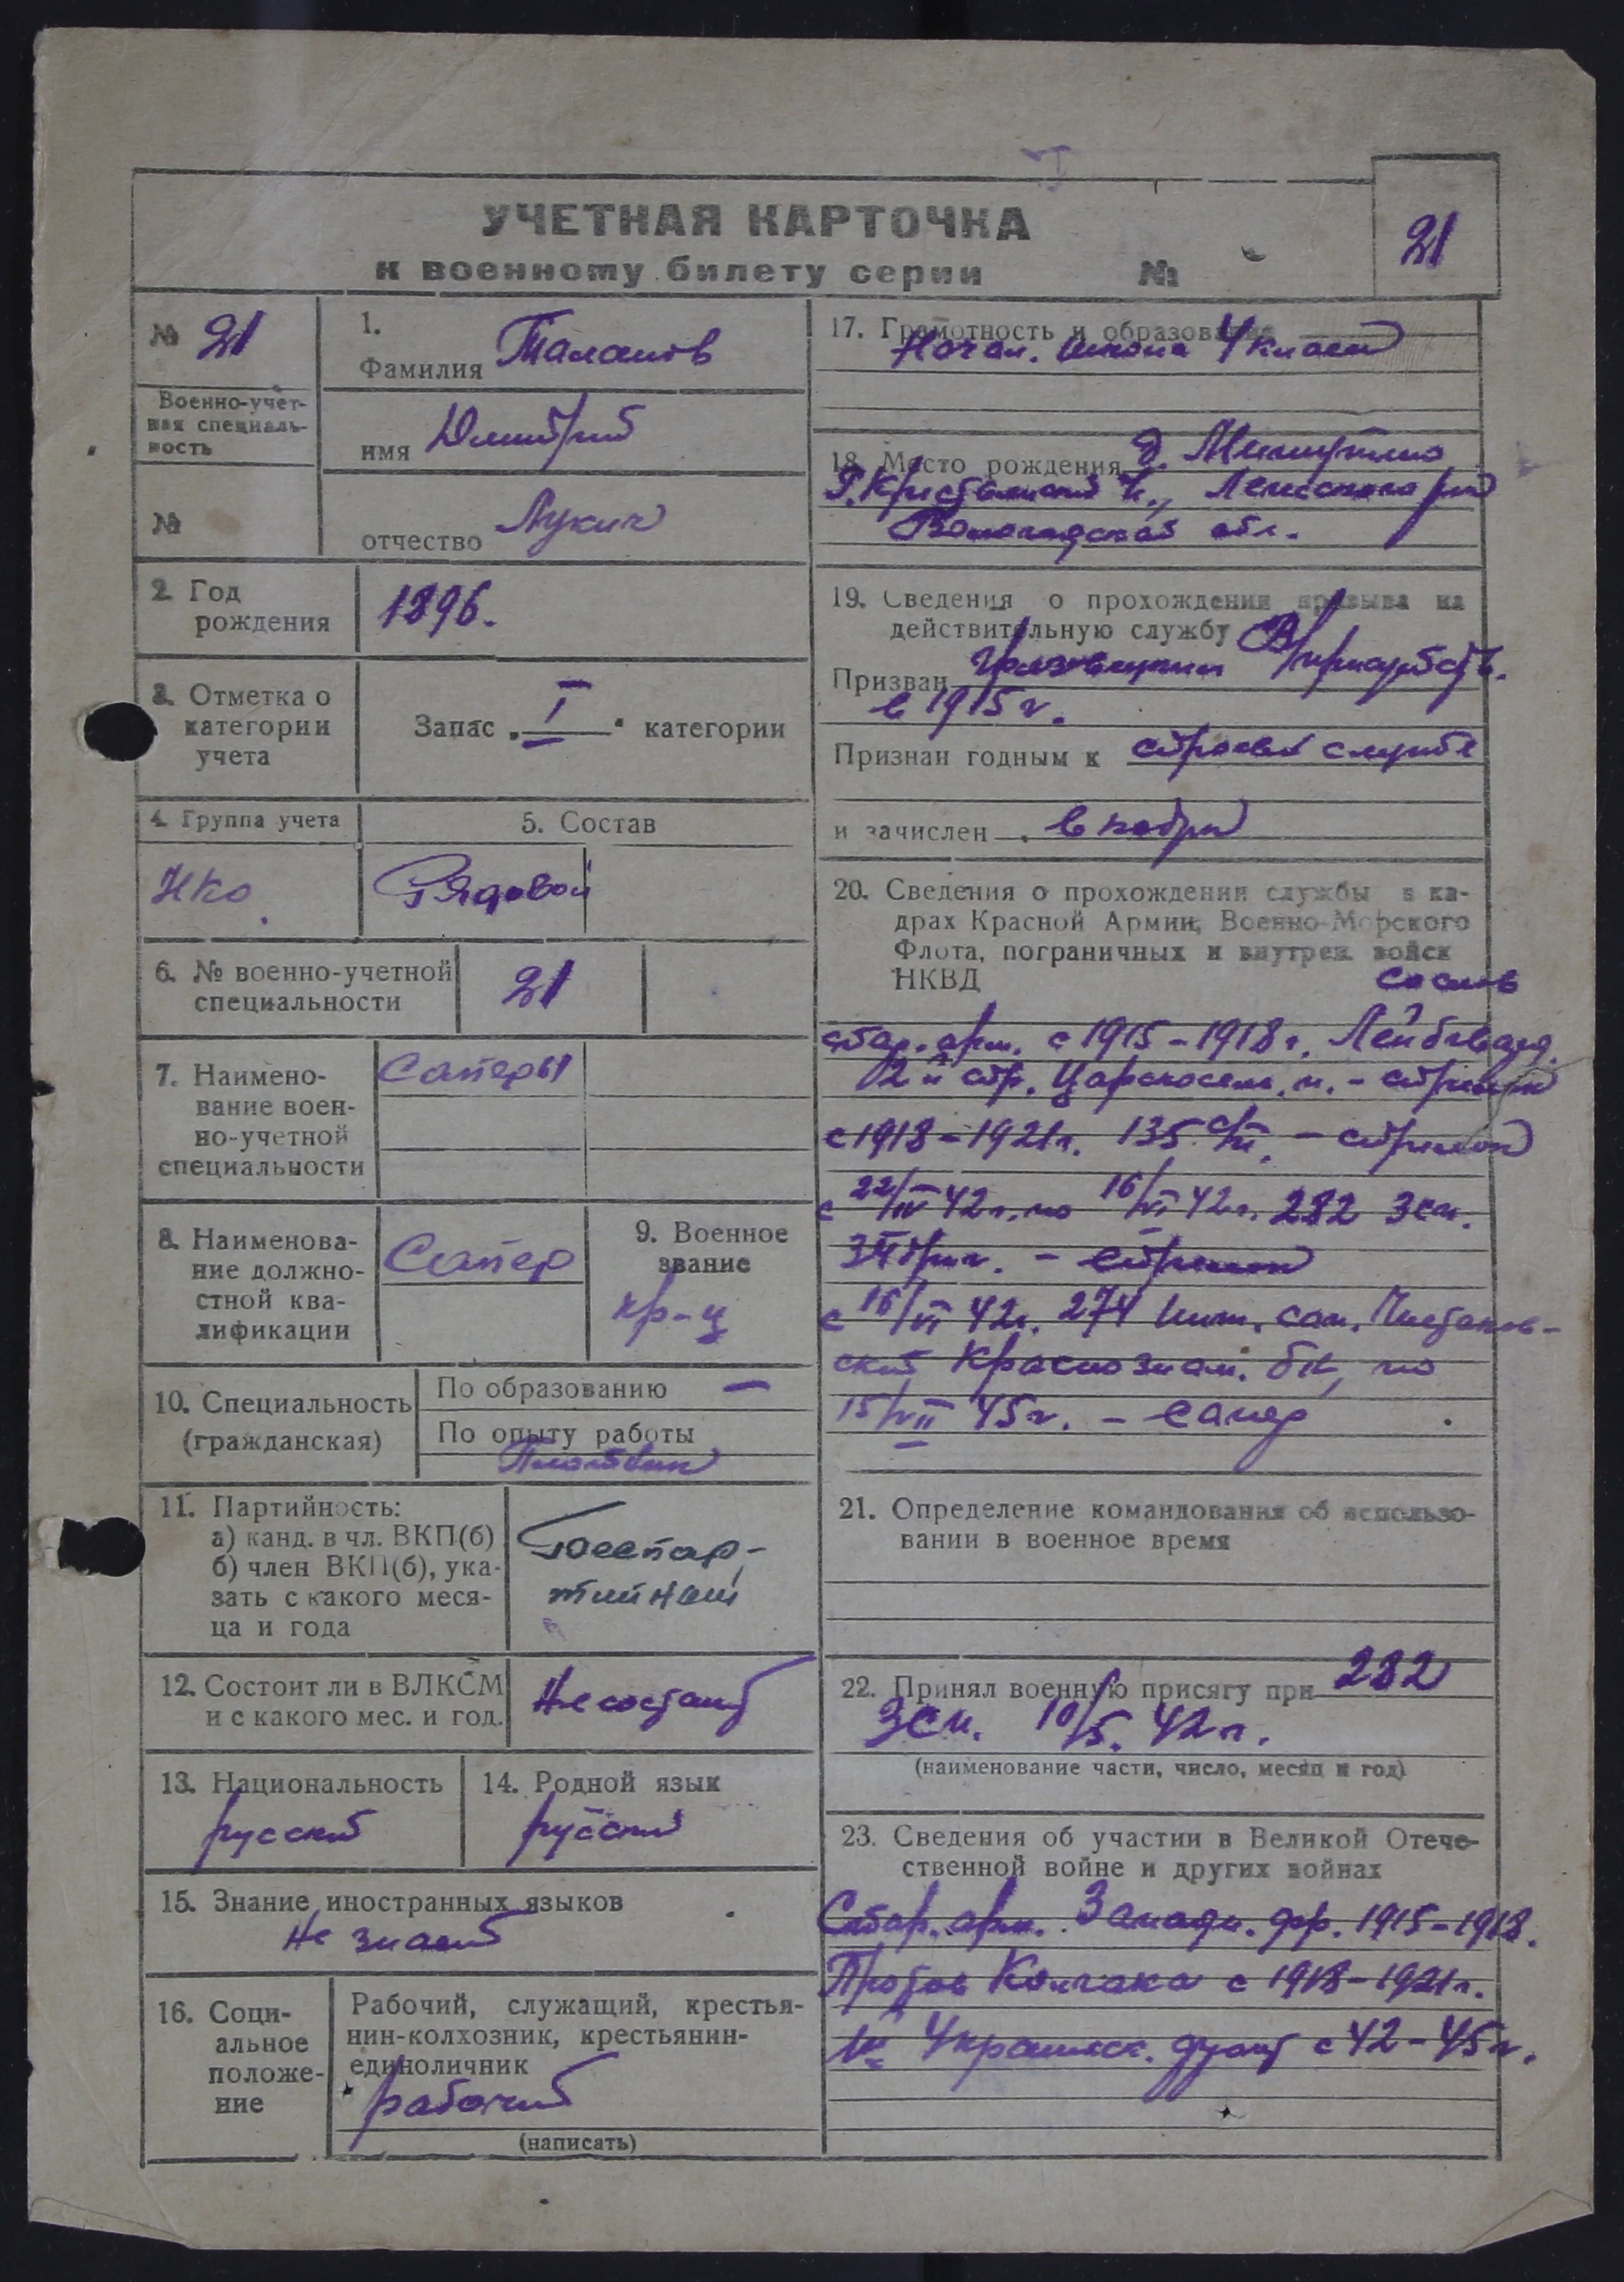 УЧЕТНАЯ КАРТОЧКА
к военному билету серии №
21
№ 21
Военно-учет-
ная специаль-
ность
№
1.
Фамилия Талашов
имя Дмитрий
отчество Лукич
2. Год
рождения
1896.
3. Отметка о
категории
учета
Запас „I“ категории
4. Группа учета
НКО
5. Состав
Рядовой
6. № военно-учетной
специальности
21
7. Наимено-
вание воен-
но-учетной
специальности
Саперы
8. Наименова-
ние должно-
стной ква-
лификации
Сапер
9. Военное
звание
кр-ц
10. Специальность
(гражданская)
По образованию —
По опыту работы
Плотник
11. Партийность:
а) канд. в чл. ВКП(б)
б) член ВКП(б), ука-
зать с какого меся-
ца и года
Беспар-
тийный
12. Состоит ли в ВЛКСМ
и с какого мес. и год.
Не состоит
13. Национальность
русский
14. Родной язык
русский
15. Знание иностранных языков
Не знает
16. Соци-
альное
положе-
ние
Рабочий, служащий, крестья-
нин-колхозник, крестьянин-
единоличник
рабочий
(написать)
17. Грамотность и образование
Начал. школа 4 класса
18. Место рождения д.
Вологодская обл.
19. Сведения о прохождении призыва на
действительную службу
Призван
в 1915 г.
Признан годным к строевой службе
и зачислен в кадры
20. Сведения о прохождении службы в ка-
драх Красной Армии, Военно-Морского
Флота, пограничных и внутрен. войск
НКВД
стар. арм. с 1915-1918 г. Лейбгвард.
2й стр. Царскосель. п. - стрелок
с 1918-1921 г. 135 сп. - стрелок
с 22/IV 42 г. по 16/VI 42 г. 282 Зсп.
- стрелок
с 16/VI 42 г. 274 инж. сап.
ский Краснознам. бн, по
15/VII 45 г. - сапер
21. Определение командования об использо-
вании в военное время
22. Принял военную присягу при 282
Зсп. 10/5. 42 г.
(наименование части, число, месяц и год)
23. Сведения об участии в Великой Отече-
ственной войне и других войнах
Стар. арм. Западн. фр. 1915-1918.
Против Колчака с 1918-1921 г.
Украинск. фронт с 42-45 г.